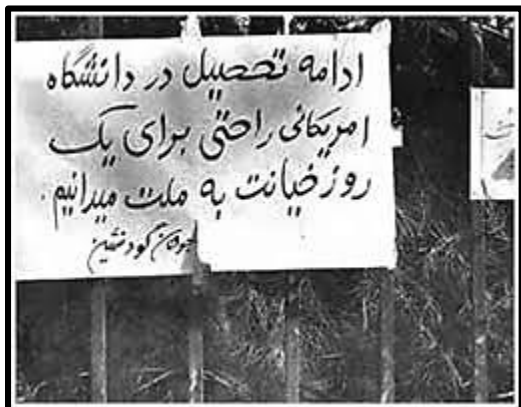 ادامه تحصیل در دانشگاه
امریکائی راحتی برای یک
روز خیانت به ملت میدانیم.
گودنشین